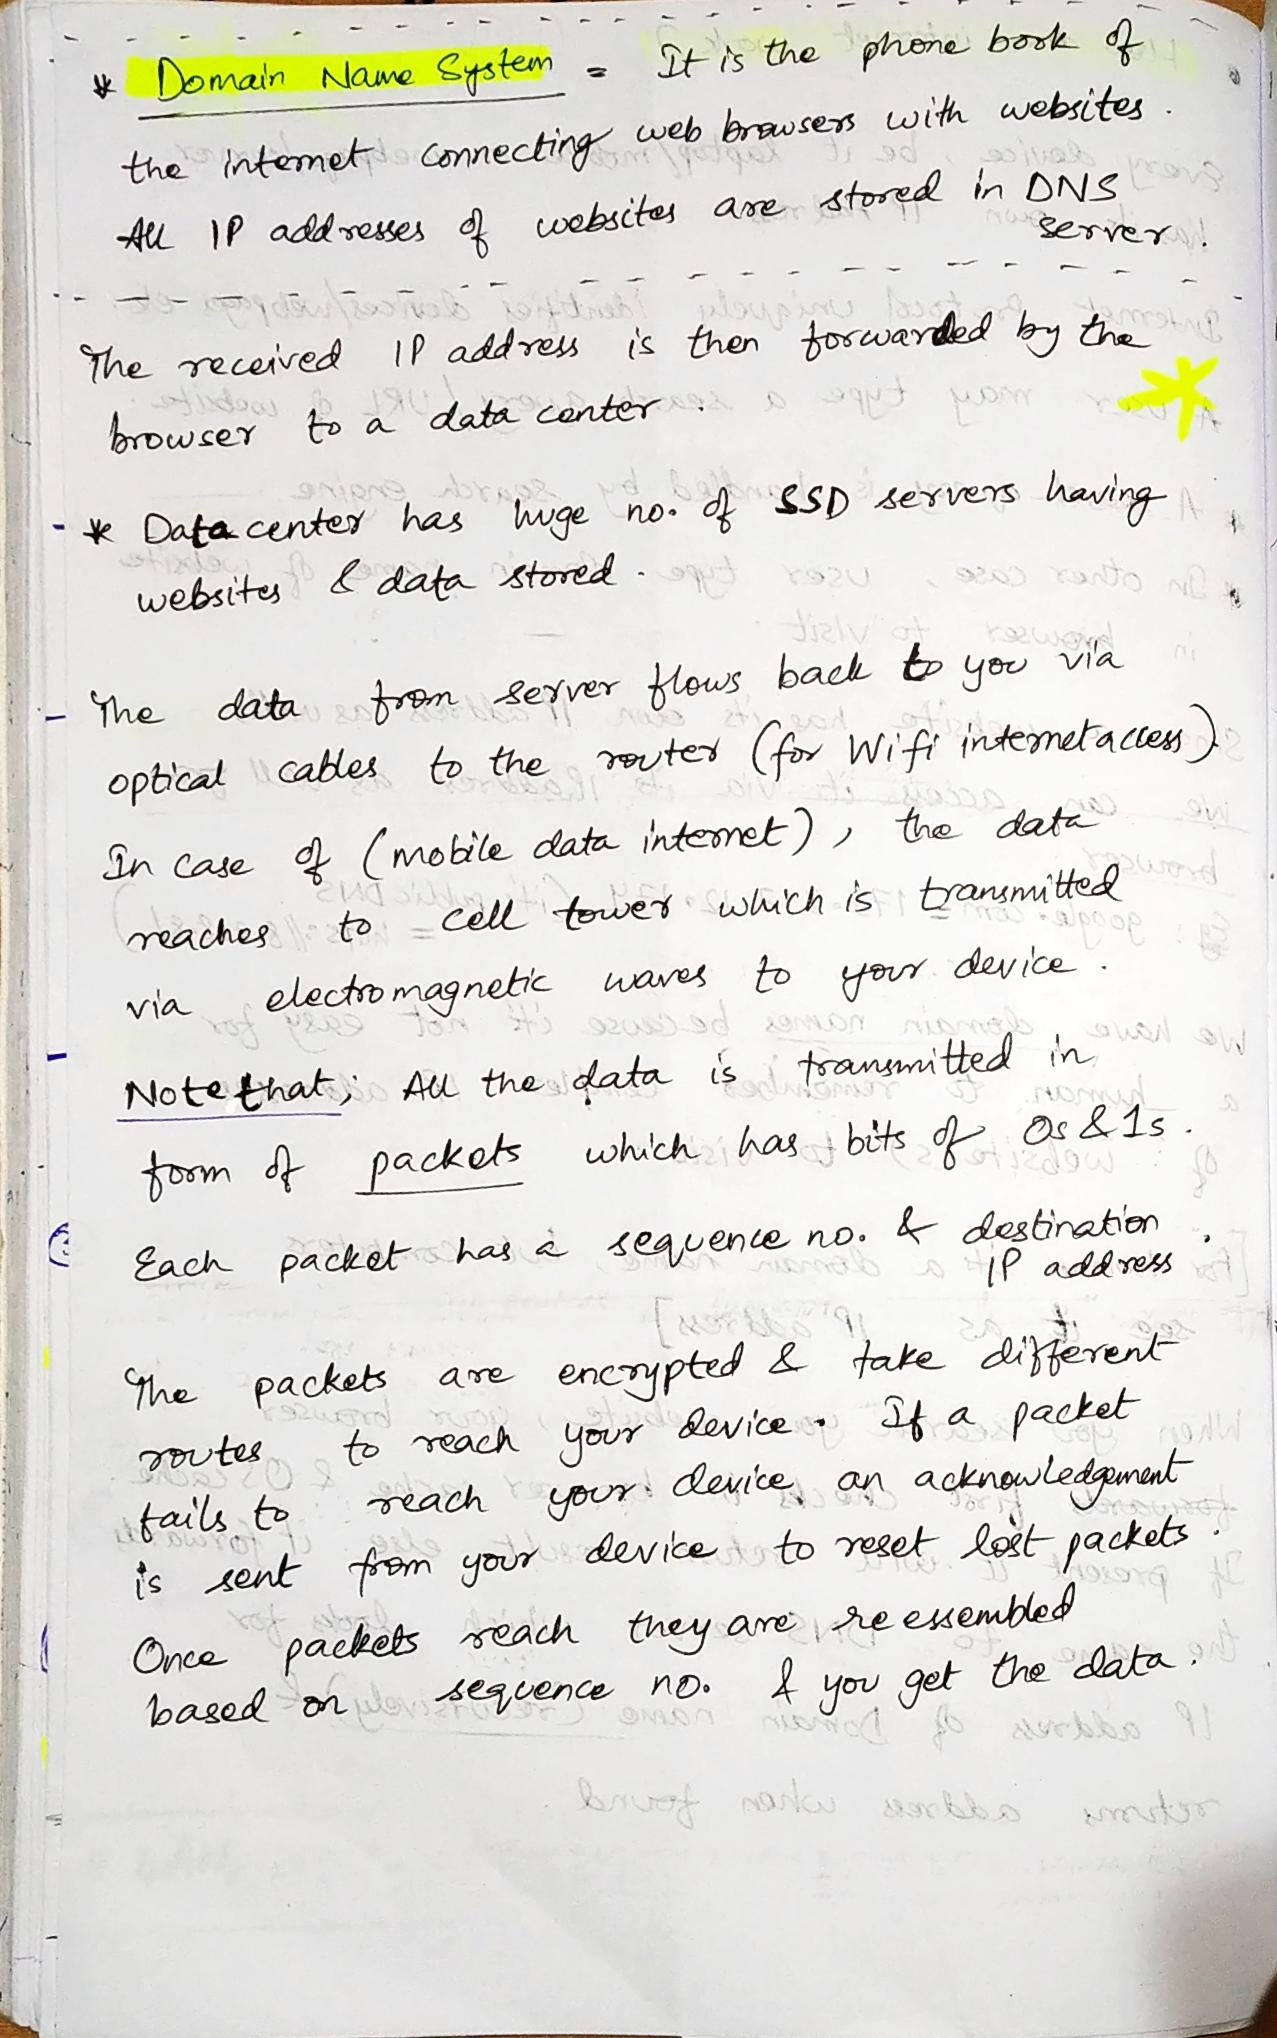 * Domain Name System = It is the phone book of
the internet connecting web browsers with websites.
All IP addresses of websites are stored in DNS
server.
The received IP address is then forwarded by the
browser to a data center.
* Data center has huge no. of SSD servers having
websites & data stored.
The data from server flows back to you via
optical cables to the router (for Wifi internet access).
In case of (mobile data internet), the data
reaches to cell tower which is transmitted
via electromagnetic waves to your device.
Note that; All the data is transmitted in
form of packets which has bits of 0s & 1s.
Each packet has a sequence no. & destination
IP address.
The packets are encrypted & take different
routes to reach your device. If a packet
fails to reach your device, an acknowledgement
is sent from your device to reset lost packets.
Once packets reach they are re essembled
based on sequence no. & you get the data.